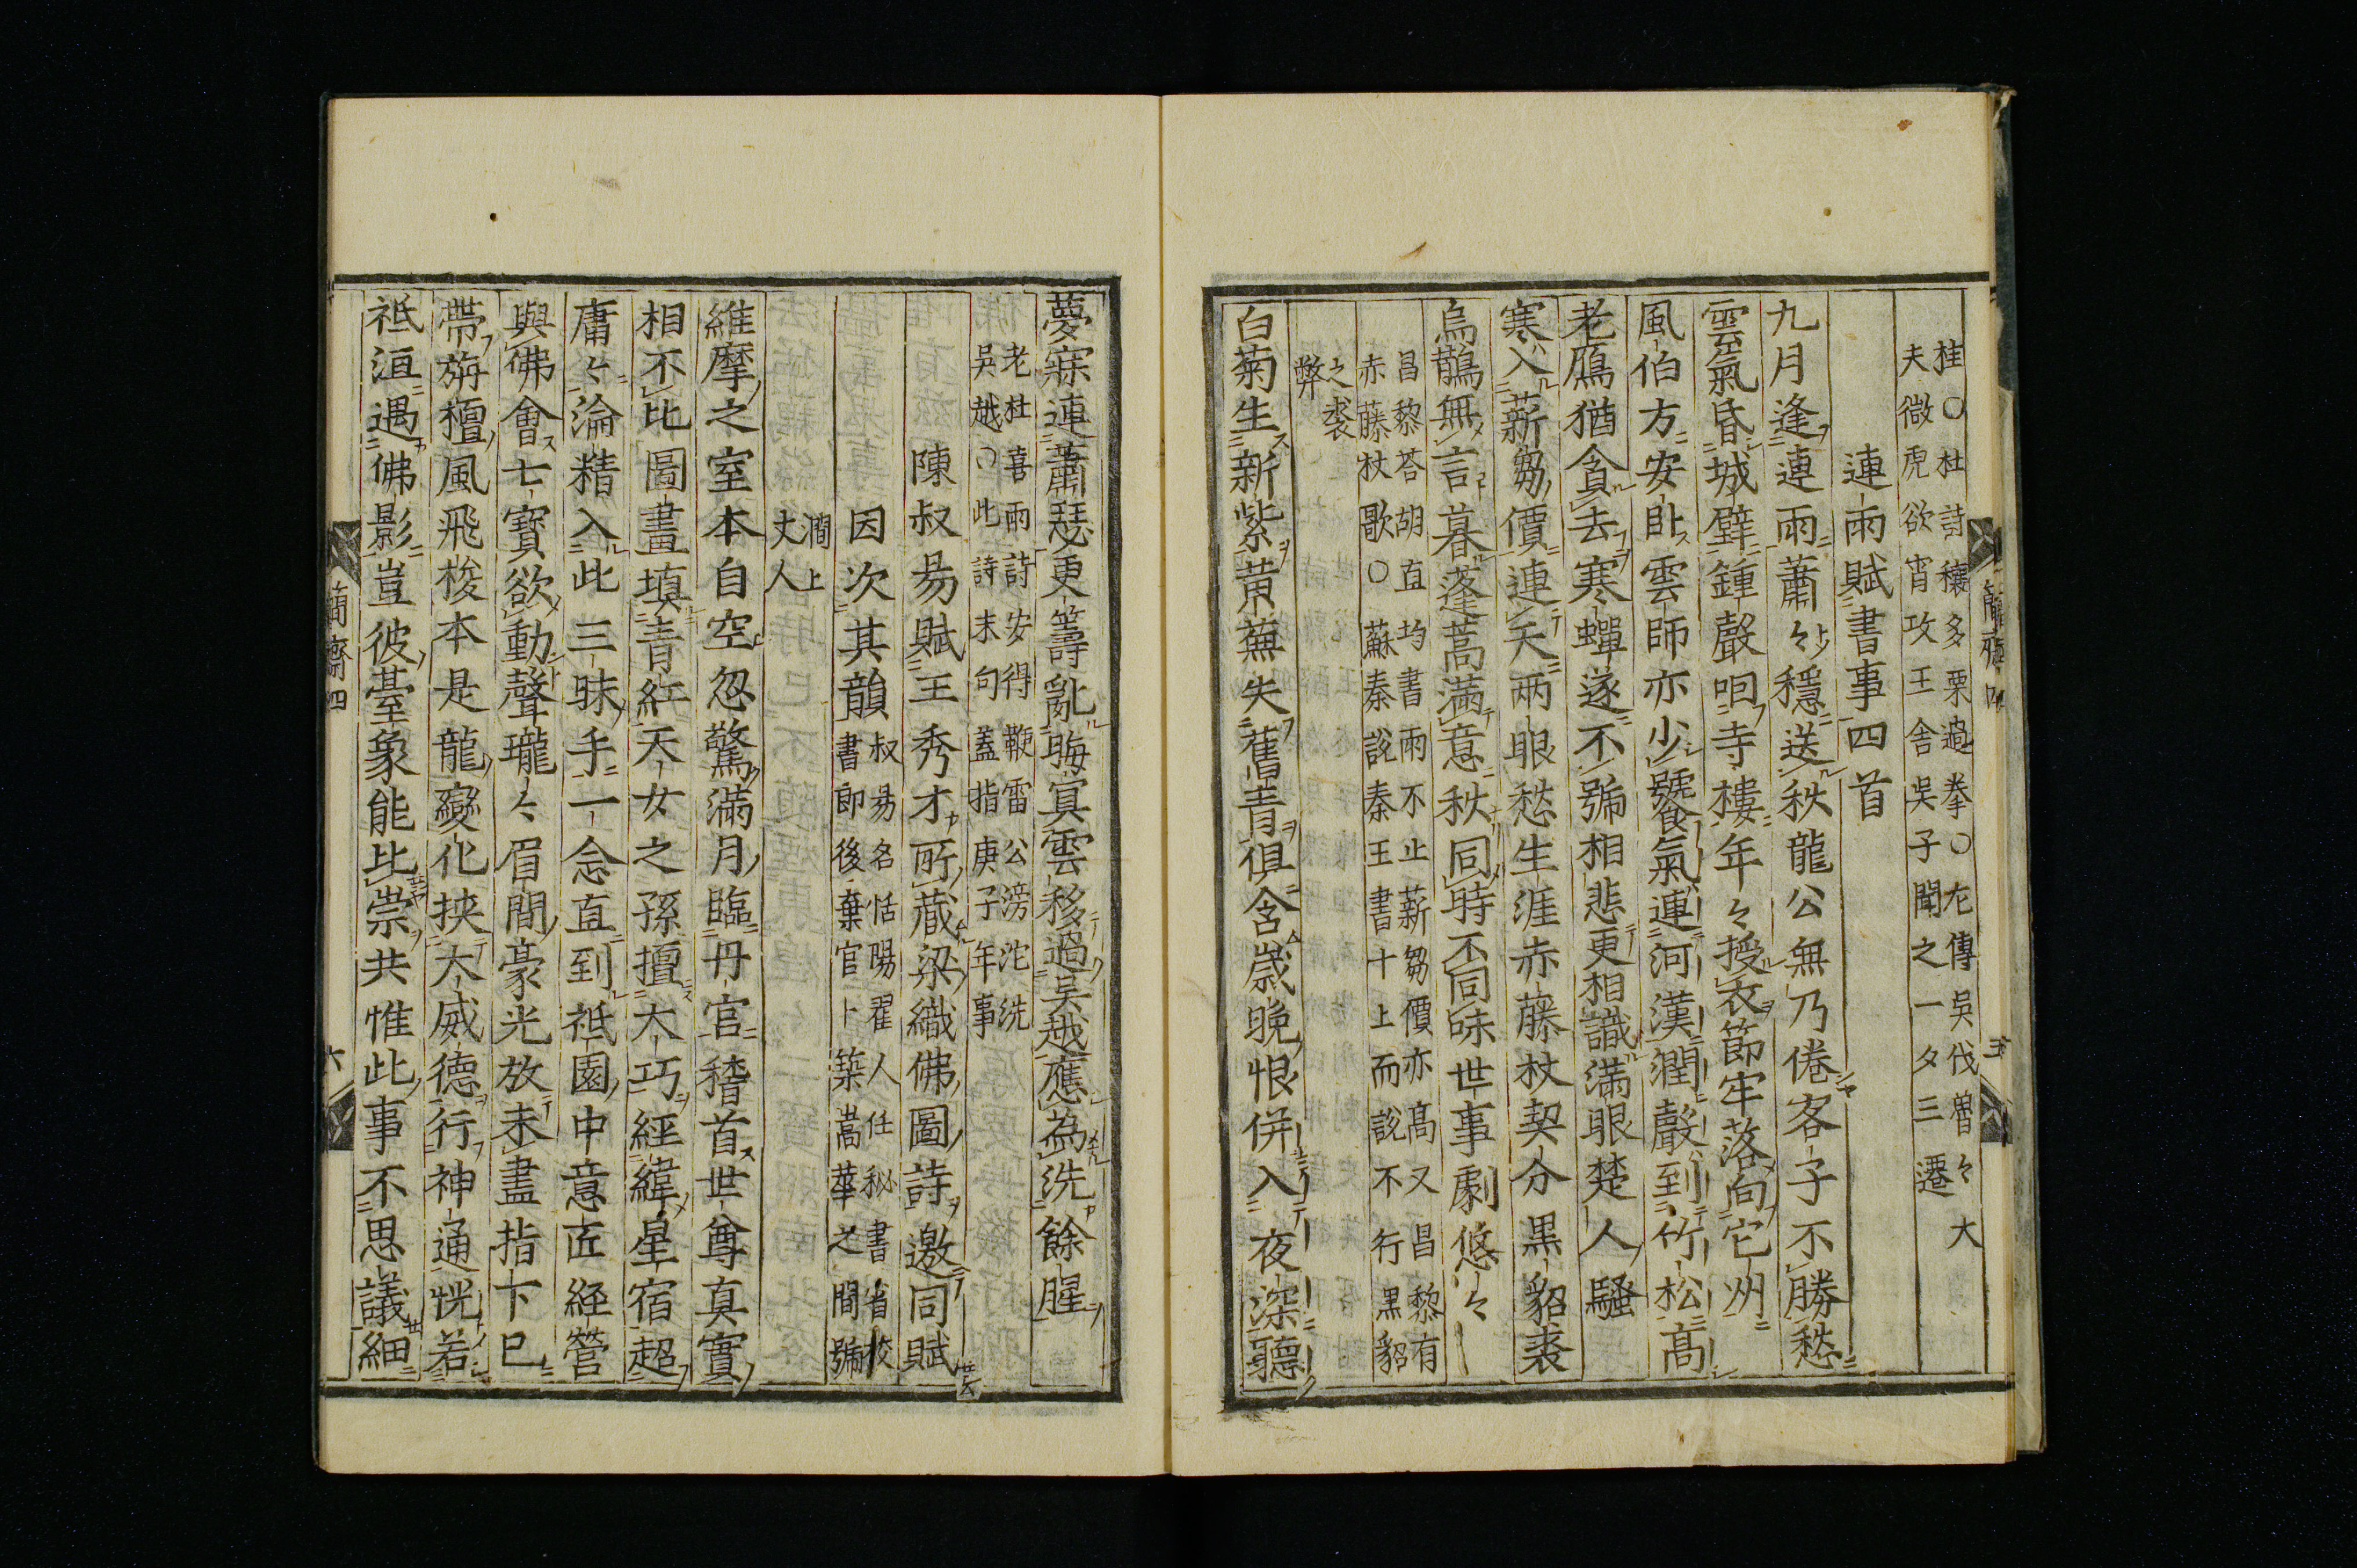 桂○杜詩穰多栗過拳○左傳吳伐曽々大
夫微虎欲宵攻王舎吳子聞之一夕三遷
連雨賦書事四首
九月逢連雨蕭々穩送秋龍公無乃倦客子不勝愁
雲氣昏城壁鍾聲咽寺樓年々授衣節牢落向它州
風伯方安臥雲師亦少饕氣連河漢潤聲到竹松高
老鴈猶貪去寒蟬遂不號相悲更相識滿眼楚人騷
寒入薪芻價連天兩眼愁生涯赤藤杖契分黒貂裘
烏鵲無言暮蓬蒿滿意秋同時不同味世事劇悠々
昌黎荅胡直均書雨不止薪芻價亦髙又昌黎有
赤藤杖歌○蘇秦說秦王書十上而說不行黒貂
之裘
弊
白菊生新紫黄蕪失舊青俱含歳晩恨併入夜深聽
簡齋四
五
夢寐連蕭瑟更籌亂晦冥雲移過吳越應為洗餘腥
老杜喜雨詩安得鞭雷公滂沱洗
吳越○此詩末句蓋指庚子年事
陳叔易賦王秀才所藏梁織佛圖詩邀同賦
因次其韻
叔昜名恬陽翟人任秘書省校
書郎後棄官卜築嵩華之間號
澗上
丈人
維摩之室本自空忽驚滿月臨丹宫稽首世尊真實
相不比圖畫填青紅天女之孫擅大巧經緯星宿超
庸々淪精入此三昧手一念直到祗園中意匠經營
與佛會七寶欲動聲瓏々眉間豪光放未盡指下已
帶旃檀風飛梭本是龍變化挾大威德行神通恍若
祗洹遇佛影豈彼臺象能比崇共惟此事不思議細
簡齋四
六